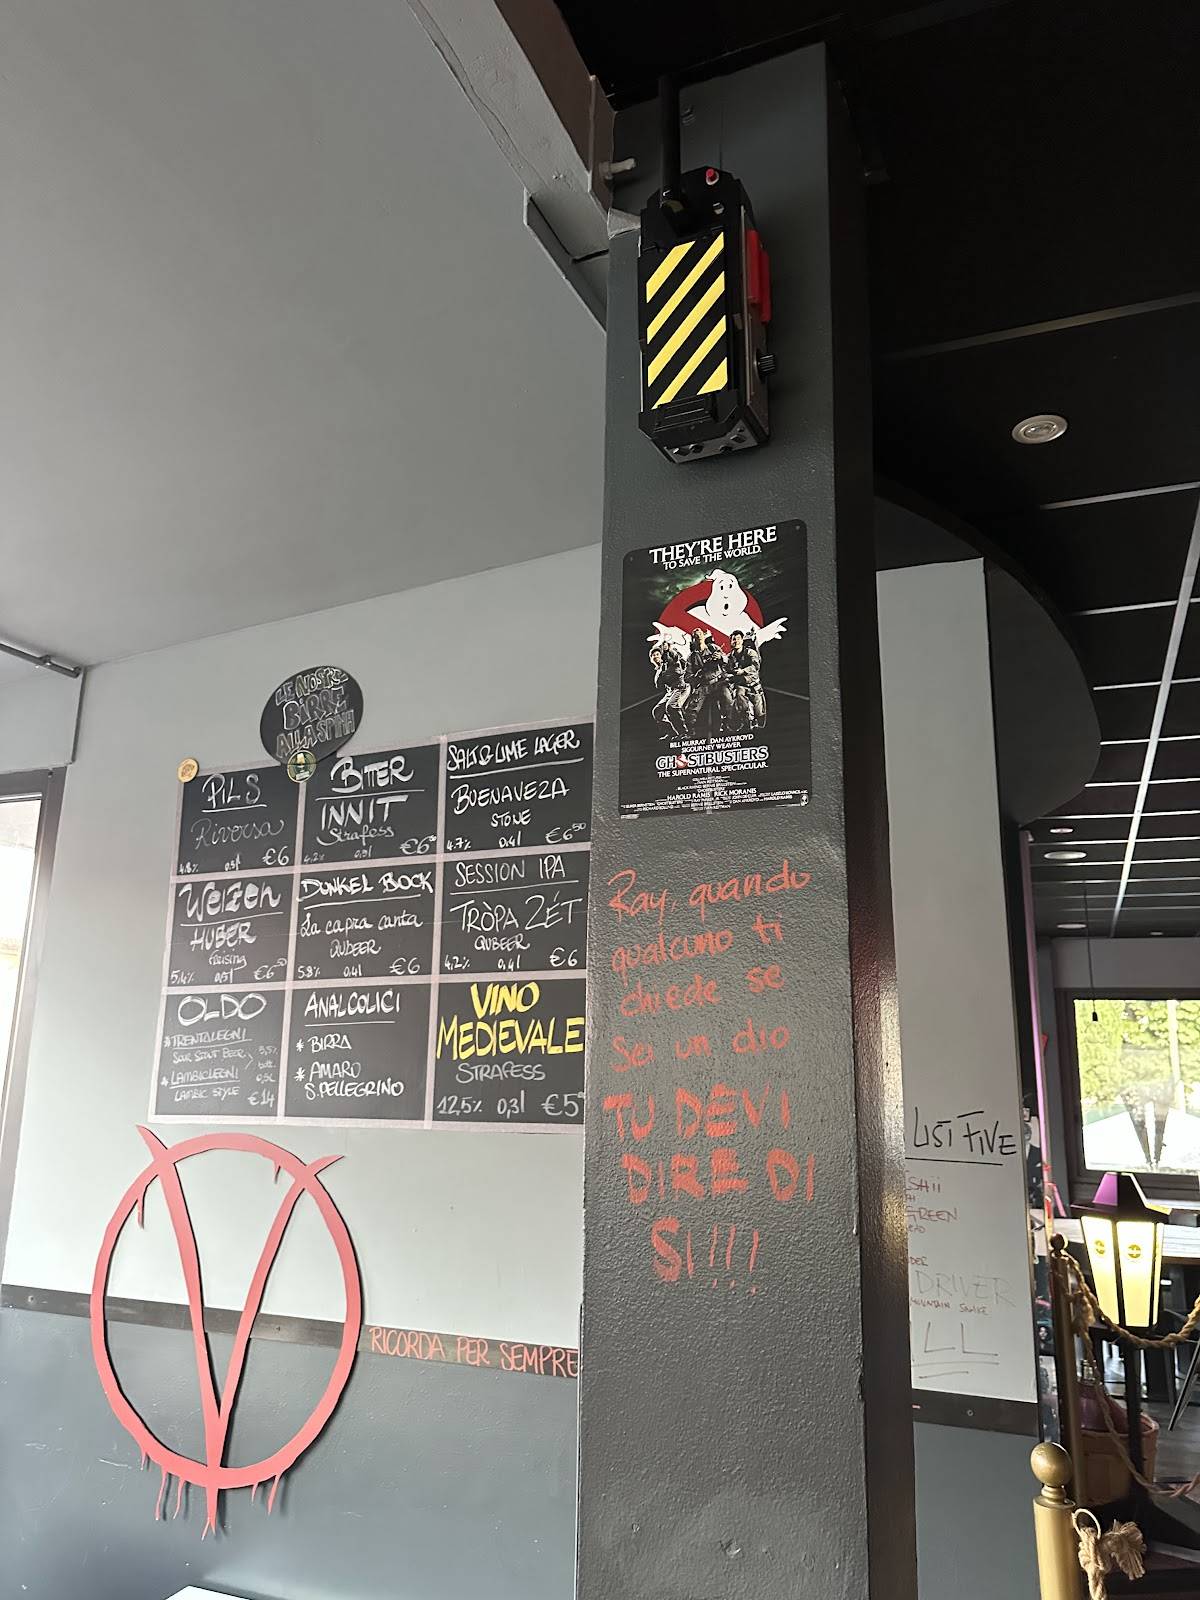 LE NOSTRE
BIRRE
ALLA SPINA
PILS
Riversa
4.8% 0,5l €6
BITTER
INNIT
Strafess
4,2% 0,5l €6,50
SALT & LIME LAGER
BUENAVEZA
STONE
4.7% 0,4l €6,50
Weizen
HUBER
Freising
5,4% 0,5l €6,50
DUNKEL BOCK
La capra canta
QUBEER
5.8% 0,4l €6
SESSION IPA
TRÒPA ZÉT
QUBEER
4,2% 0,4l €6
OLDO
* TRENTALEGNI
SOUR STOUT BEER
* LAMBICLEGNI
LAMBIC STYLE
€14
ANALCOLICI
* BIRRA
* AMARO
S.PELLEGRINO
VINO
MEDIEVALE
STRAFESS
12,5% 0,3l €5
RICORDA PER SEMPRE
THEY'RE HERE
TO SAVE THE WORLD.
BILL MURRAY DAN AYKROYD
SIGOURNEY WEAVER
GHOSTBUSTERS
THE SUPERNATURAL SPECTACULAR.
HAROLD RAMIS RICK MORANIS
Ray, quando
qualcuno ti
chiede se
Sei un dio
TU DEVI
DIRE DI
SI!!!
FIVE
GREEN
DRIVER
MOUNTAIN SNAKE